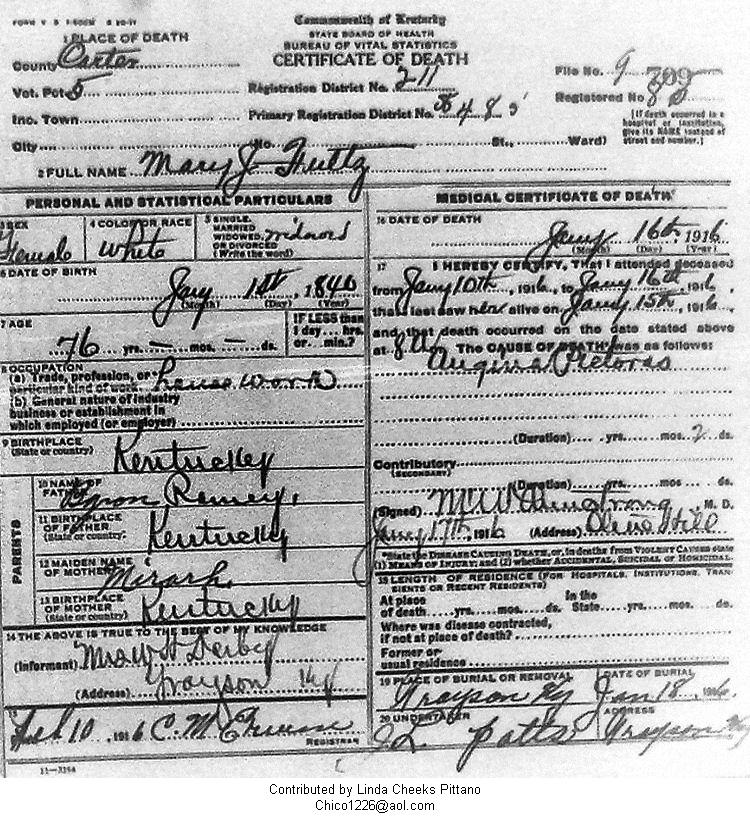 FORM V S 1-500M 8 20-11
Commonwealth of Kentucky
STATE BOARD OF HEALTH
BUREAU OF VITAL STATISTICS
CERTIFICATE OF DEATH
1 PLACE OF DEATH
County Carter
Vot. Pct 5
Inc. Town
City No. St., Ward)
Registration District No. 211
Primary Registration District No.
File No. 9 709
Registered No
[If death occurred in a hospital or institution, give its NAME instead of street and number.]
2 FULL NAME Mary J Fultz
PERSONAL AND STATISTICAL PARTICULARS
3 SEX Female
4 COLOR OR RACE White
5 SINGLE, MARRIED WIDOWED, OR DIVORCED (Write the word) widowed
6 DATE OF BIRTH
Jany 1st, 1840
(Month) (Day) (Year)
7 AGE
76 yrs. – mos. – ds.
IF LESS than 1 day... hrs. or min.?
8 OCCUPATION
(a) Trade, profession, or particular kind of work house work
(b) General nature of industry business or establishment in which employed (or employer)
9 BIRTHPLACE
(State or country) Kentucky
PARENTS
10 NAME OF FATHER Byron Ramey
11 BIRTHPLACE OF FATHER
(State or country) Kentucky
12 MAIDEN NAME OF MOTHER
13 BIRTHPLACE OF MOTHER
(State or country) Kentucky
14 THE ABOVE IS TRUE TO THE BEST OF MY KNOWLEDGE
(Informant) Mrs W H Derby
(Address) Grayson Ky
15
Feb 10, 1916 C. M.
REGISTRAR
11-3184
MEDICAL CERTIFICATE OF DEATH
16 DATE OF DEATH
Jany 16th 1916
(Month) (Day) (Year)
17 I HEREBY CERTIFY, That I attended deceased
from Jany 10th, 1916, to Jany 16th, 1916,
that I last saw her alive on Jany 15th, 1916,
and that death occurred on the date stated above
at 8 The CAUSE OF DEATH was as follows:
Angina Pictoras
(Duration) yrs. mos. 2 ds.
Contributory
(SECONDARY)
(Duration) yrs. mos. ds.
(Signed) M W Armstrong, M. D.
Jany 17th, 1916 (Address) Olive Hill
*State the DISEASE CAUSING DEATH, or, in deaths from VIOLENT CAUSES state
(1) MEANS OF INJURY; and (2) whether ACCIDENTAL, SUICIDAL OR HOMICIDAL.
18 LENGTH OF RESIDENCE (FOR HOSPITALS, INSTITUTIONS, TRANSIENTS OR RECENT RESIDENTS)
At place of death yrs. mos. ds. In the State yrs. mos. ds.
Where was disease contracted,
if not at place of death?
Former or usual residence
19 PLACE OF BURIAL OR REMOVAL Grayson Ky
DATE OF BURIAL Jan 18 1916
20 UNDERTAKER J L Potts
ADDRESS Grayson Ky
Contributed by Linda Cheeks Pittano
Chico1226@aol.com